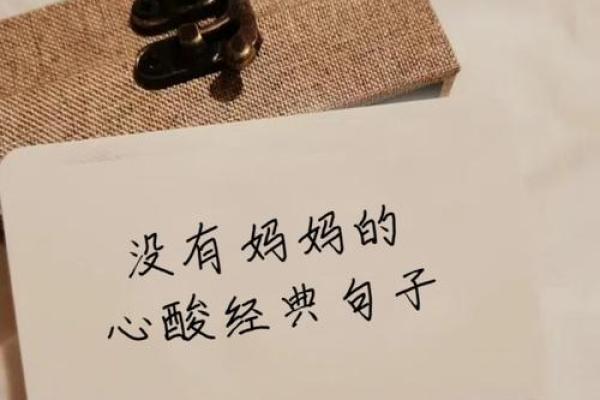 没有妈妈的
心酸经典句子